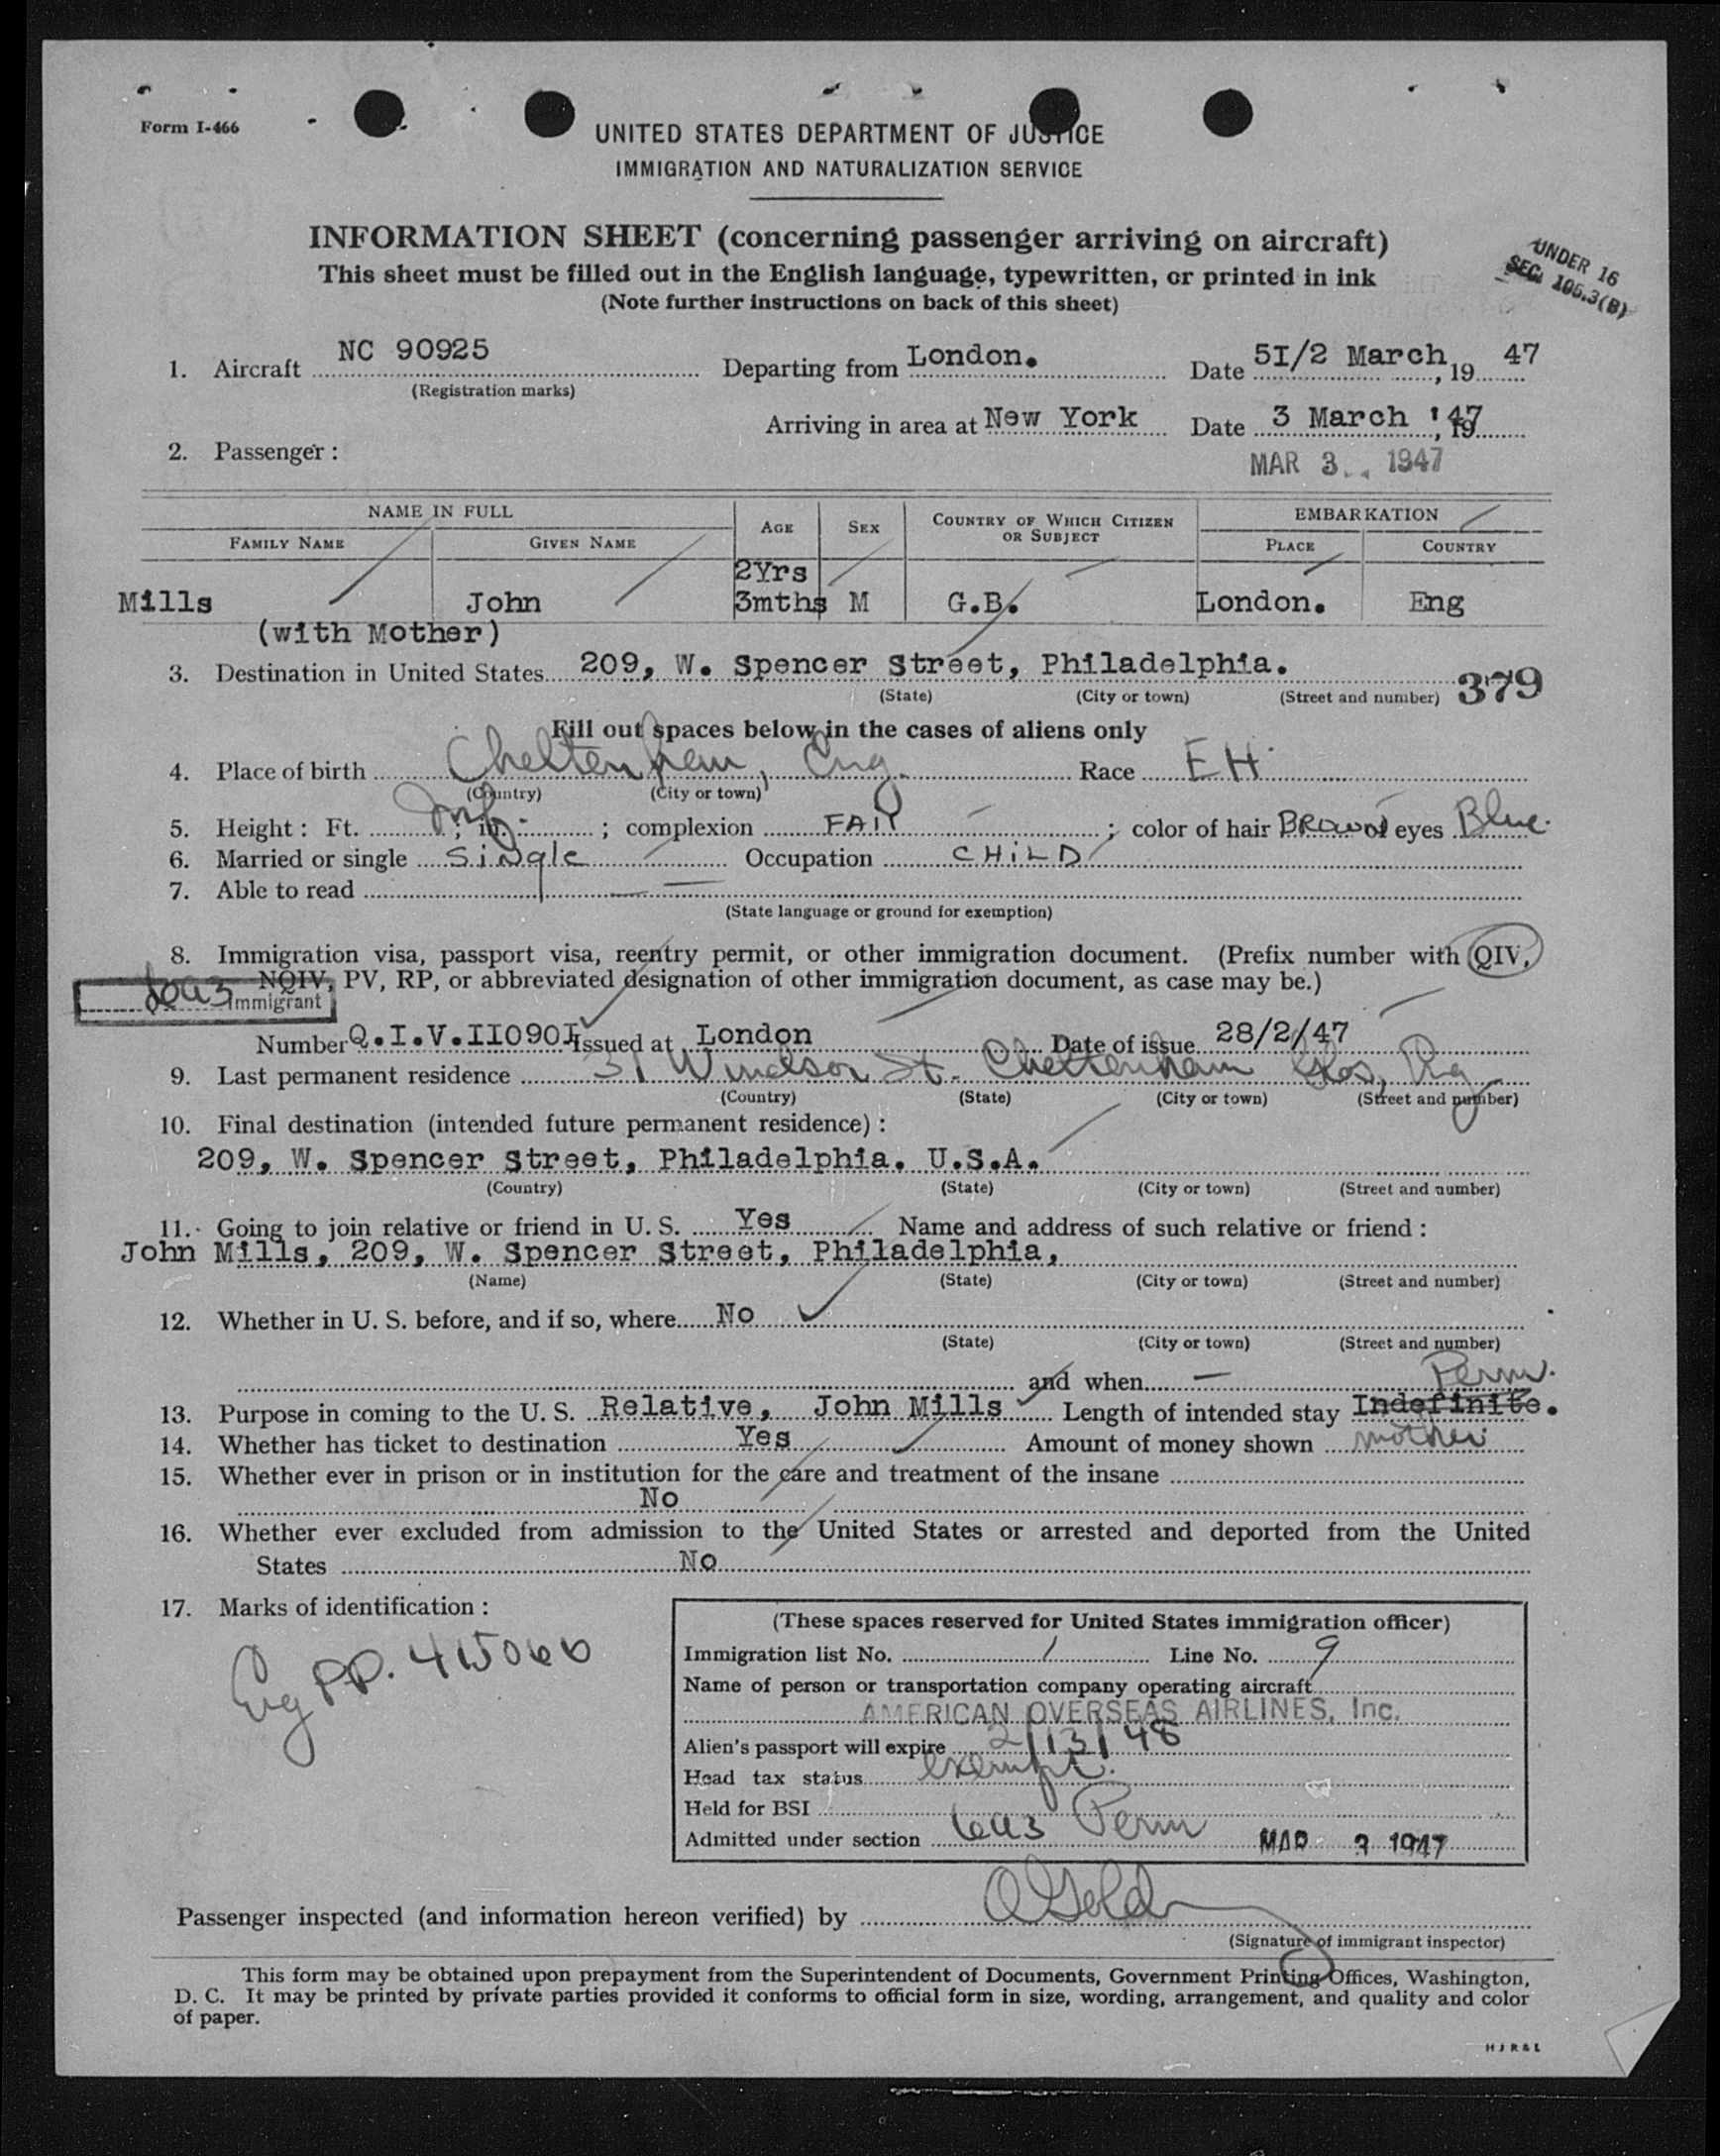 Form I-466
UNITED STATES DEPARTMENT OF JUSTICE
IMMIGRATION AND NATURALIZATION SERVICE
INFORMATION SHEET (concerning passenger arriving on aircraft)
This sheet must be filled out in the English language, typewritten, or printed in ink
(Note further instructions on back of this sheet)
UNDER 16
SEC. 105.3(B)
1. Aircraft NC 90925 Departing from London. Date 5I/2 March, 19 47
(Registration marks)
Arriving in area at New York Date 3 March '47, 19
2. Passenger:
MAR 3 1947
NAME IN FULL AGE SEX COUNTRY OF WHICH CITIZEN OR SUBJECT EMBARKATION
FAMILY NAME GIVEN NAME PLACE COUNTRY
2Yrs
Mills John 3mths M G.B. London. Eng
(with Mother)
3. Destination in United States 209, W. Spencer Street, Philadelphia.
(State) (City or town) (Street and number) 379
Fill out spaces below in the cases of aliens only
4. Place of birth Cheltenham, Eng. Race EH
(Country) (City or town)
5. Height: Ft. Inf ; in. ; complexion FAIr ; color of hair BROWN of eyes Blue.
6. Married or single Single Occupation CHILD
7. Able to read —
(State language or ground for exemption)
8. Immigration visa, passport visa, reentry permit, or other immigration document. (Prefix number with QIV,
NQIV, PV, RP, or abbreviated designation of other immigration document, as case may be.)
6a3 Immigrant
Number Q.I.V.II090I Issued at London Date of issue 28/2/47
9. Last permanent residence 31 Windsor St. Cheltenham Glos, Eng
(Country) (State) (City or town) (Street and number)
10. Final destination (intended future permanent residence):
209, W. Spencer Street, Philadelphia. U.S.A.
(Country) (State) (City or town) (Street and number)
11. Going to join relative or friend in U. S. Yes Name and address of such relative or friend:
John Mills, 209, W. Spencer Street, Philadelphia,
(Name) (State) (City or town) (Street and number)
12. Whether in U. S. before, and if so, where No
(State) (City or town) (Street and number)
and when — Perm.
13. Purpose in coming to the U. S. Relative, John Mills Length of intended stay Indefinite.
14. Whether has ticket to destination Yes Amount of money shown mother
15. Whether ever in prison or in institution for the care and treatment of the insane
No
16. Whether ever excluded from admission to the United States or arrested and deported from the United
States No
17. Marks of identification:
Eng PP. 415066
(These spaces reserved for United States immigration officer)
Immigration list No. 1 Line No. 9
Name of person or transportation company operating aircraft
AMERICAN OVERSEAS AIRLINES, Inc.
Alien's passport will expire 2/13/48
Head tax status exempt.
Held for BSI
Admitted under section 6a3 Perm MAR 3 1947
Passenger inspected (and information hereon verified) by
(Signature of immigrant inspector)
This form may be obtained upon prepayment from the Superintendent of Documents, Government Printing Offices, Washington,
D. C. It may be printed by private parties provided it conforms to official form in size, wording, arrangement, and quality and color
of paper.
H J R & L